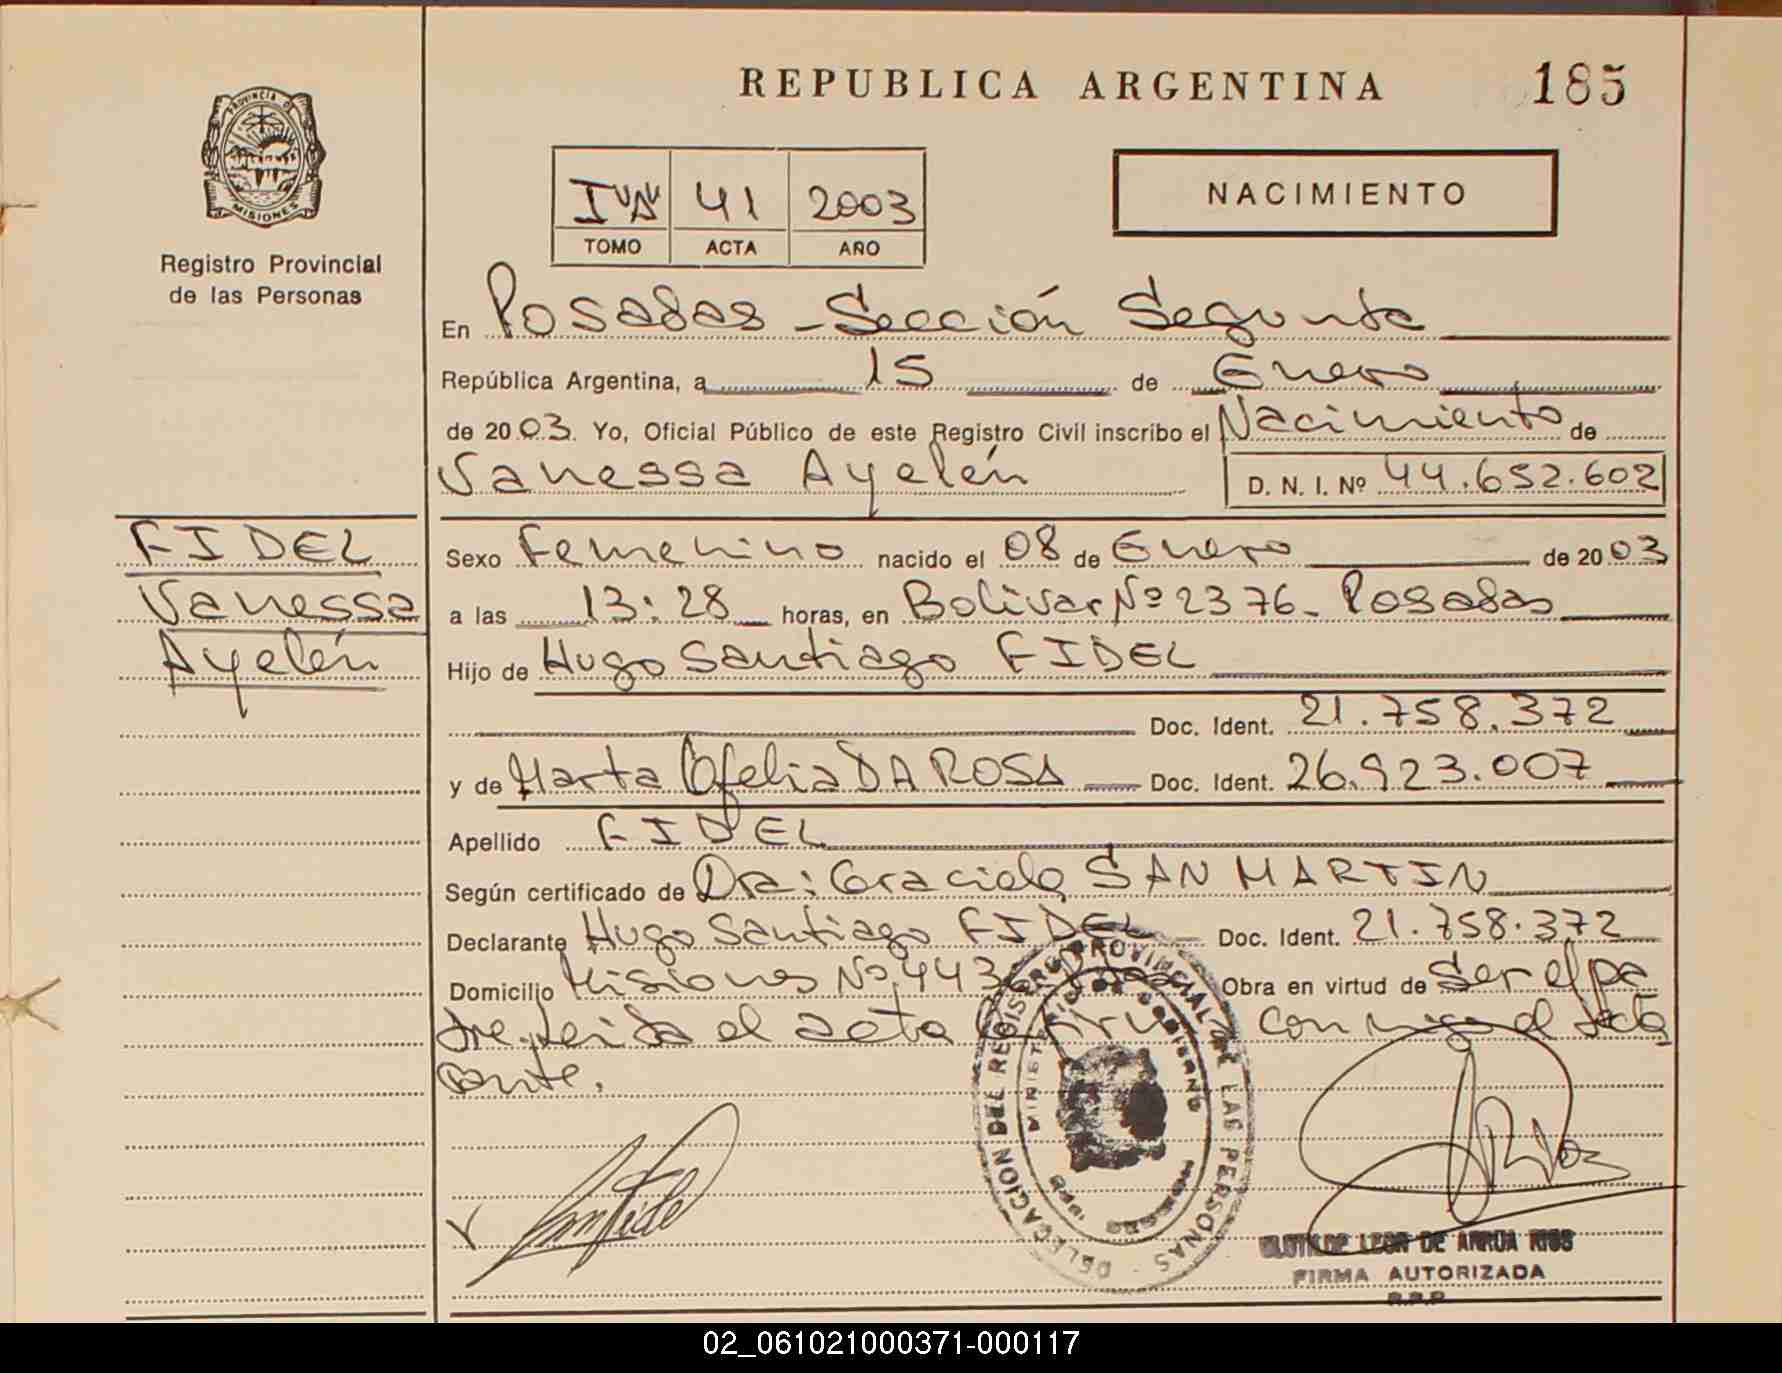 REPUBLICA ARGENTINA 185
PROVINCIA D
MISIONES
Registro Provincial
de las Personas
41 2003
TOMO ACTA AÑO
NACIMIENTO
En Posadas - Sección Segunda
República Argentina, a 15 de Enero
de 2003. Yo, Oficial Público de este Registro Civil inscribo el Nacimiento de
Vanessa Ayelén D. N. I. Nº 44.652.602
FIDEL
Vanessa
Ayelén
Sexo Femenino nacido el 08 de Enero de 2003
a las 13:28 horas, en Bolivar Nº 2376 - Posadas
Hijo de Hugo Santiago FIDEL
Doc. Ident. 21.758.372
y de Marta Ofelia DA ROSA Doc. Ident. 26.923.007
Apellido FIDEL
Según certificado de Dra: Graciela SAN MARTIN
Declarante Hugo Santiago FIDEL Doc. Ident. 21.758.372
Domicilio Misiones Nº 443 Obra en virtud de Ser el pa
dre. Leida el acta conmigo el decla
rante.
DELEGACION DEL REGISTRO PROVINCIAL DE LAS PERSONAS
MINISTERIO DE GOBIERNO
DE ARRUA RIOS
FIRMA AUTORIZADA
R.P.P
02_061021000371-000117